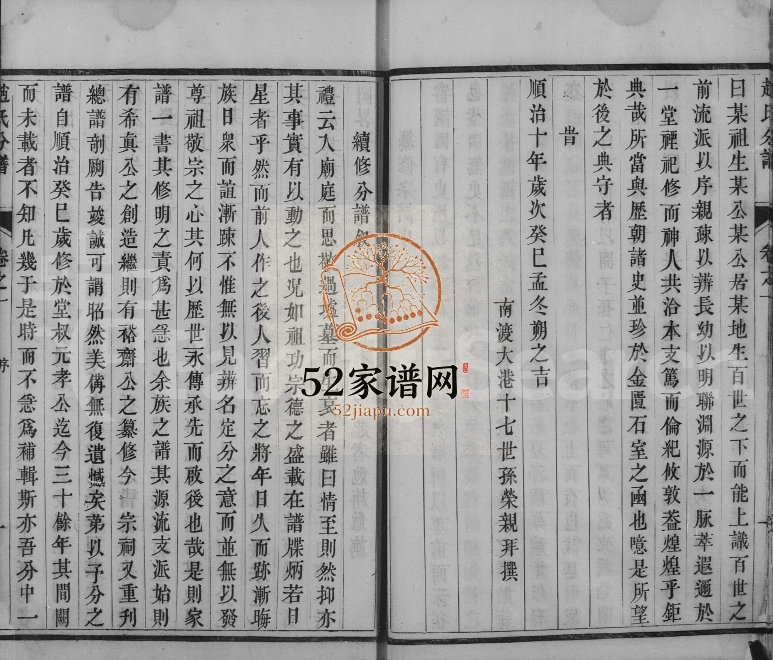 曰某祖生某公某公居某地生百世之下而能上識百世之
前流派以序親疎以辨長幼以明聯淵源於一脈萃遐邇於
一堂禋祀修而神人共洽本支篤而倫紀攸敦葢煌煌乎鉅
典哉所當與歷朝諸史並珍於金匱石室之函也噫是所望
於後之典守者
旹
順治十年歲次癸巳孟冬朔之吉
南渡大港十七世孫榮親拜撰
續修分譜
禮云入廟庭而思墓而哀者雖曰情至則然抑亦
其事實有以動之也況如祖功宗德之盛載在譜牒炳若日
星者乎然而前人作之後人習而忘之將年日久而跡漸晦
族日衆而誼漸疎不惟無以見辨名定分之意而並無以發
尊祖敬宗之心其何以歷世永傳承先而啟後也哉是則家
譜一書其修明之責爲甚急也余族之譜其源流支派始則
有希眞公之創造繼則有裕齋公之纂修今 宗祠又重刋
總譜剞劂告竣誠可謂昭然美備無復遺憾矣第以予分之
譜自順治癸巳歲修於堂叔元孝公迄今三十餘年其間闕
而未載者不知凡幾于是時而不急爲補輯斯亦吾分中一
趙氏分譜
卷之一
序
52家谱网
52jiapu.com